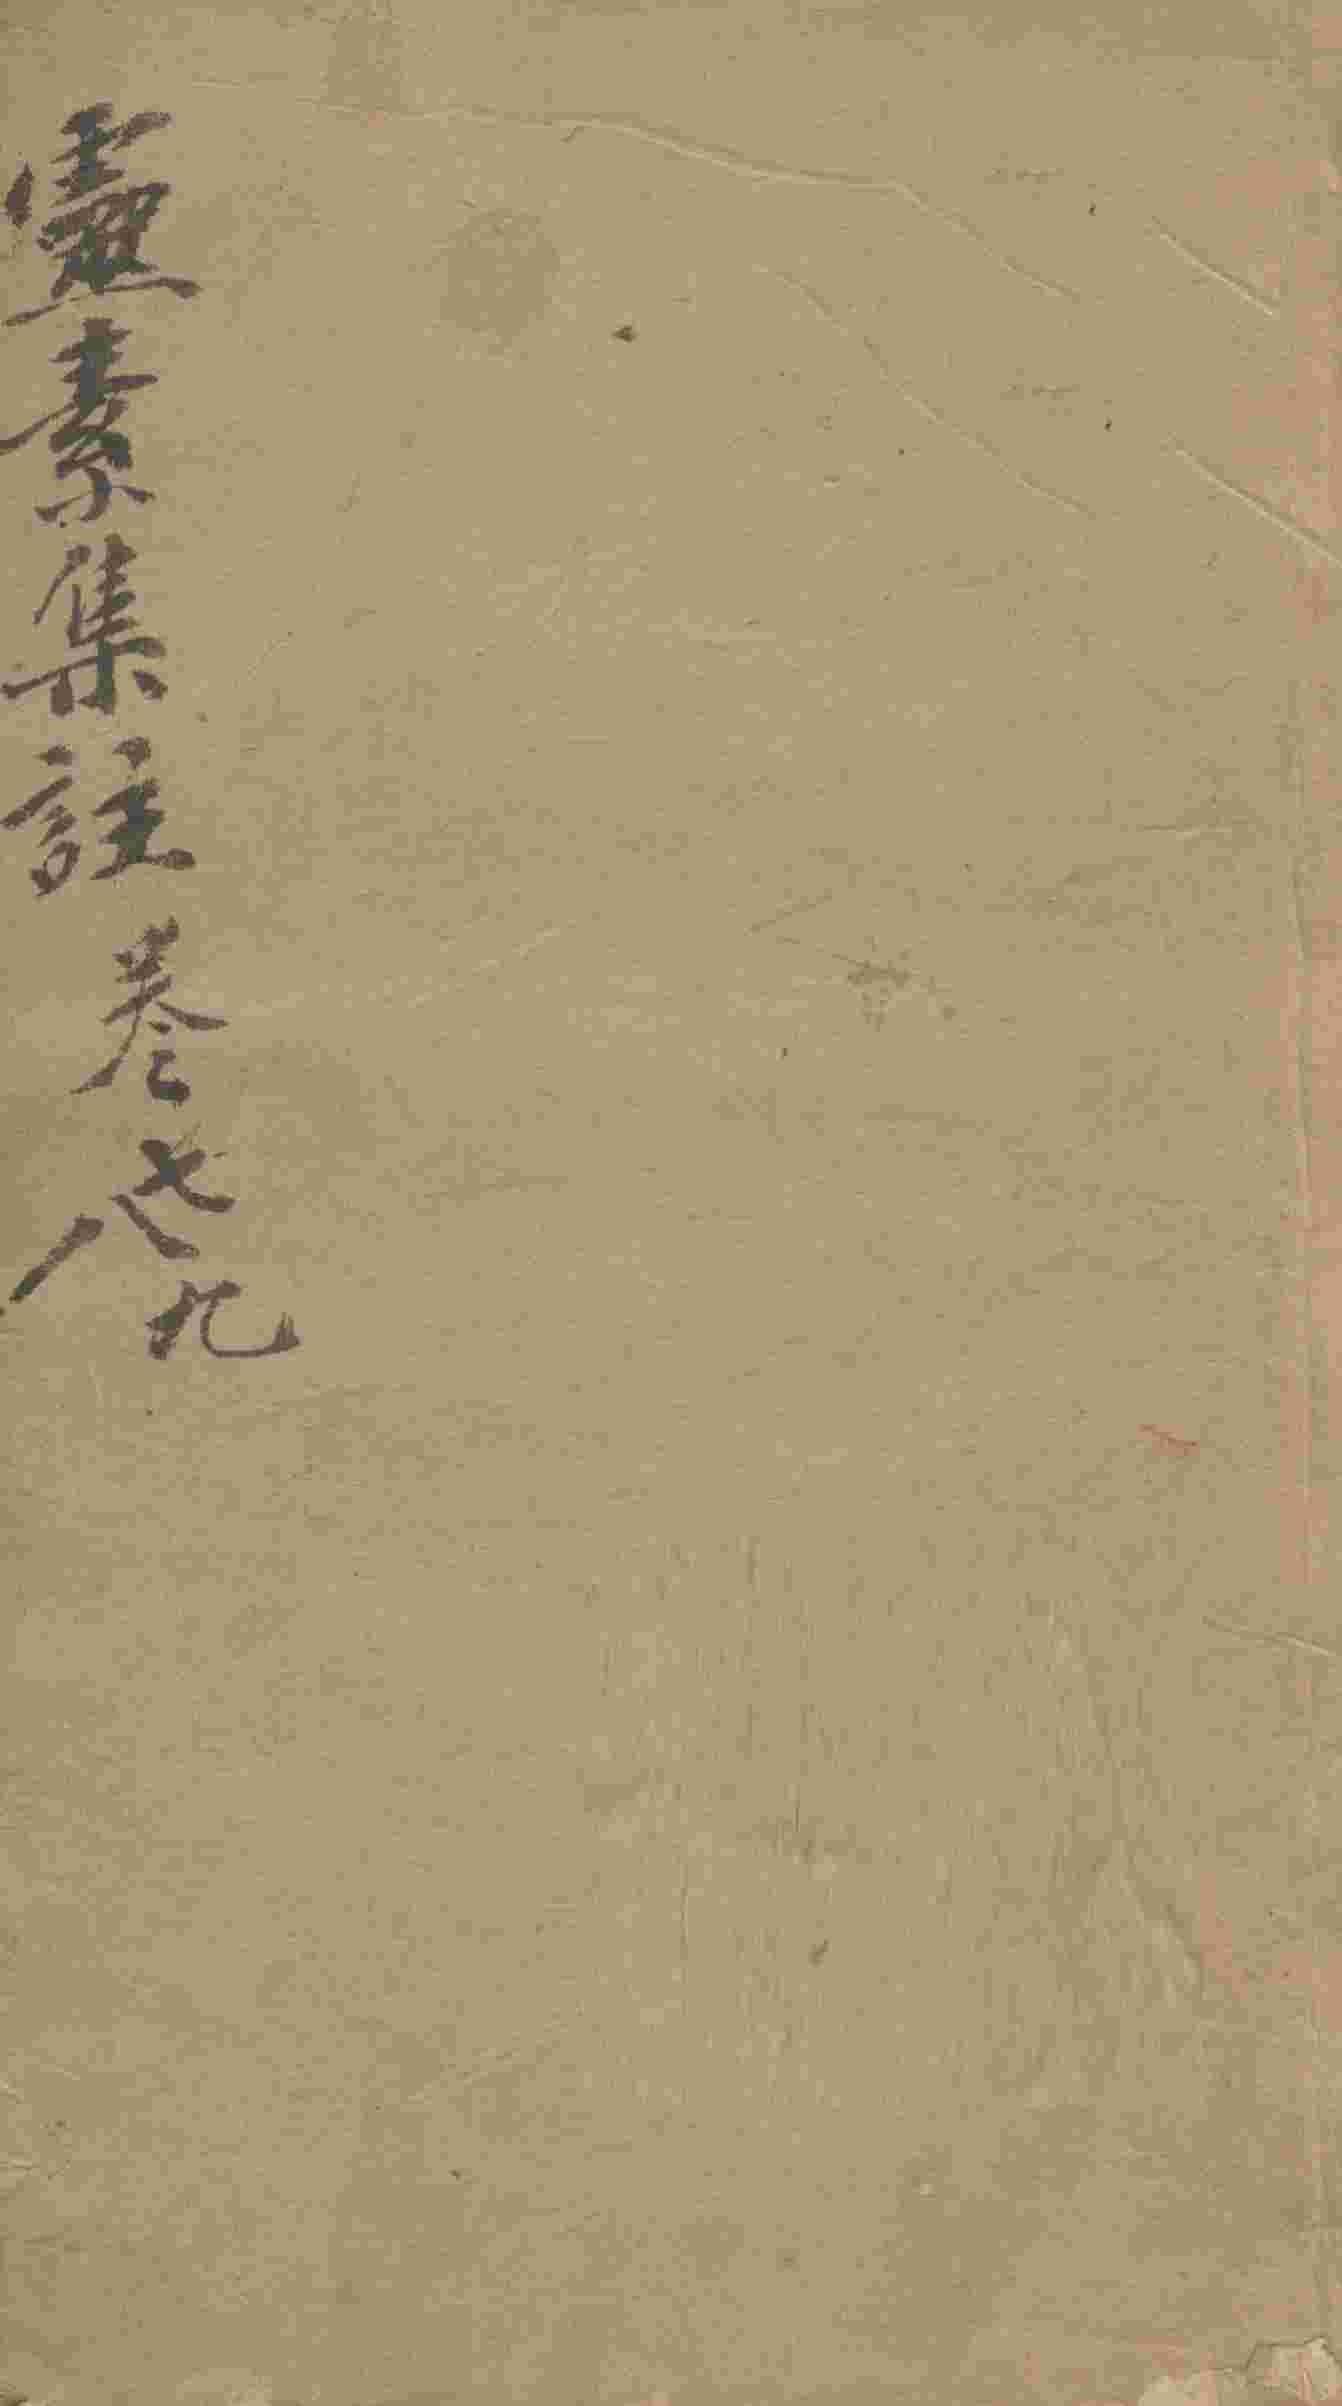 靈素集註 卷七八九